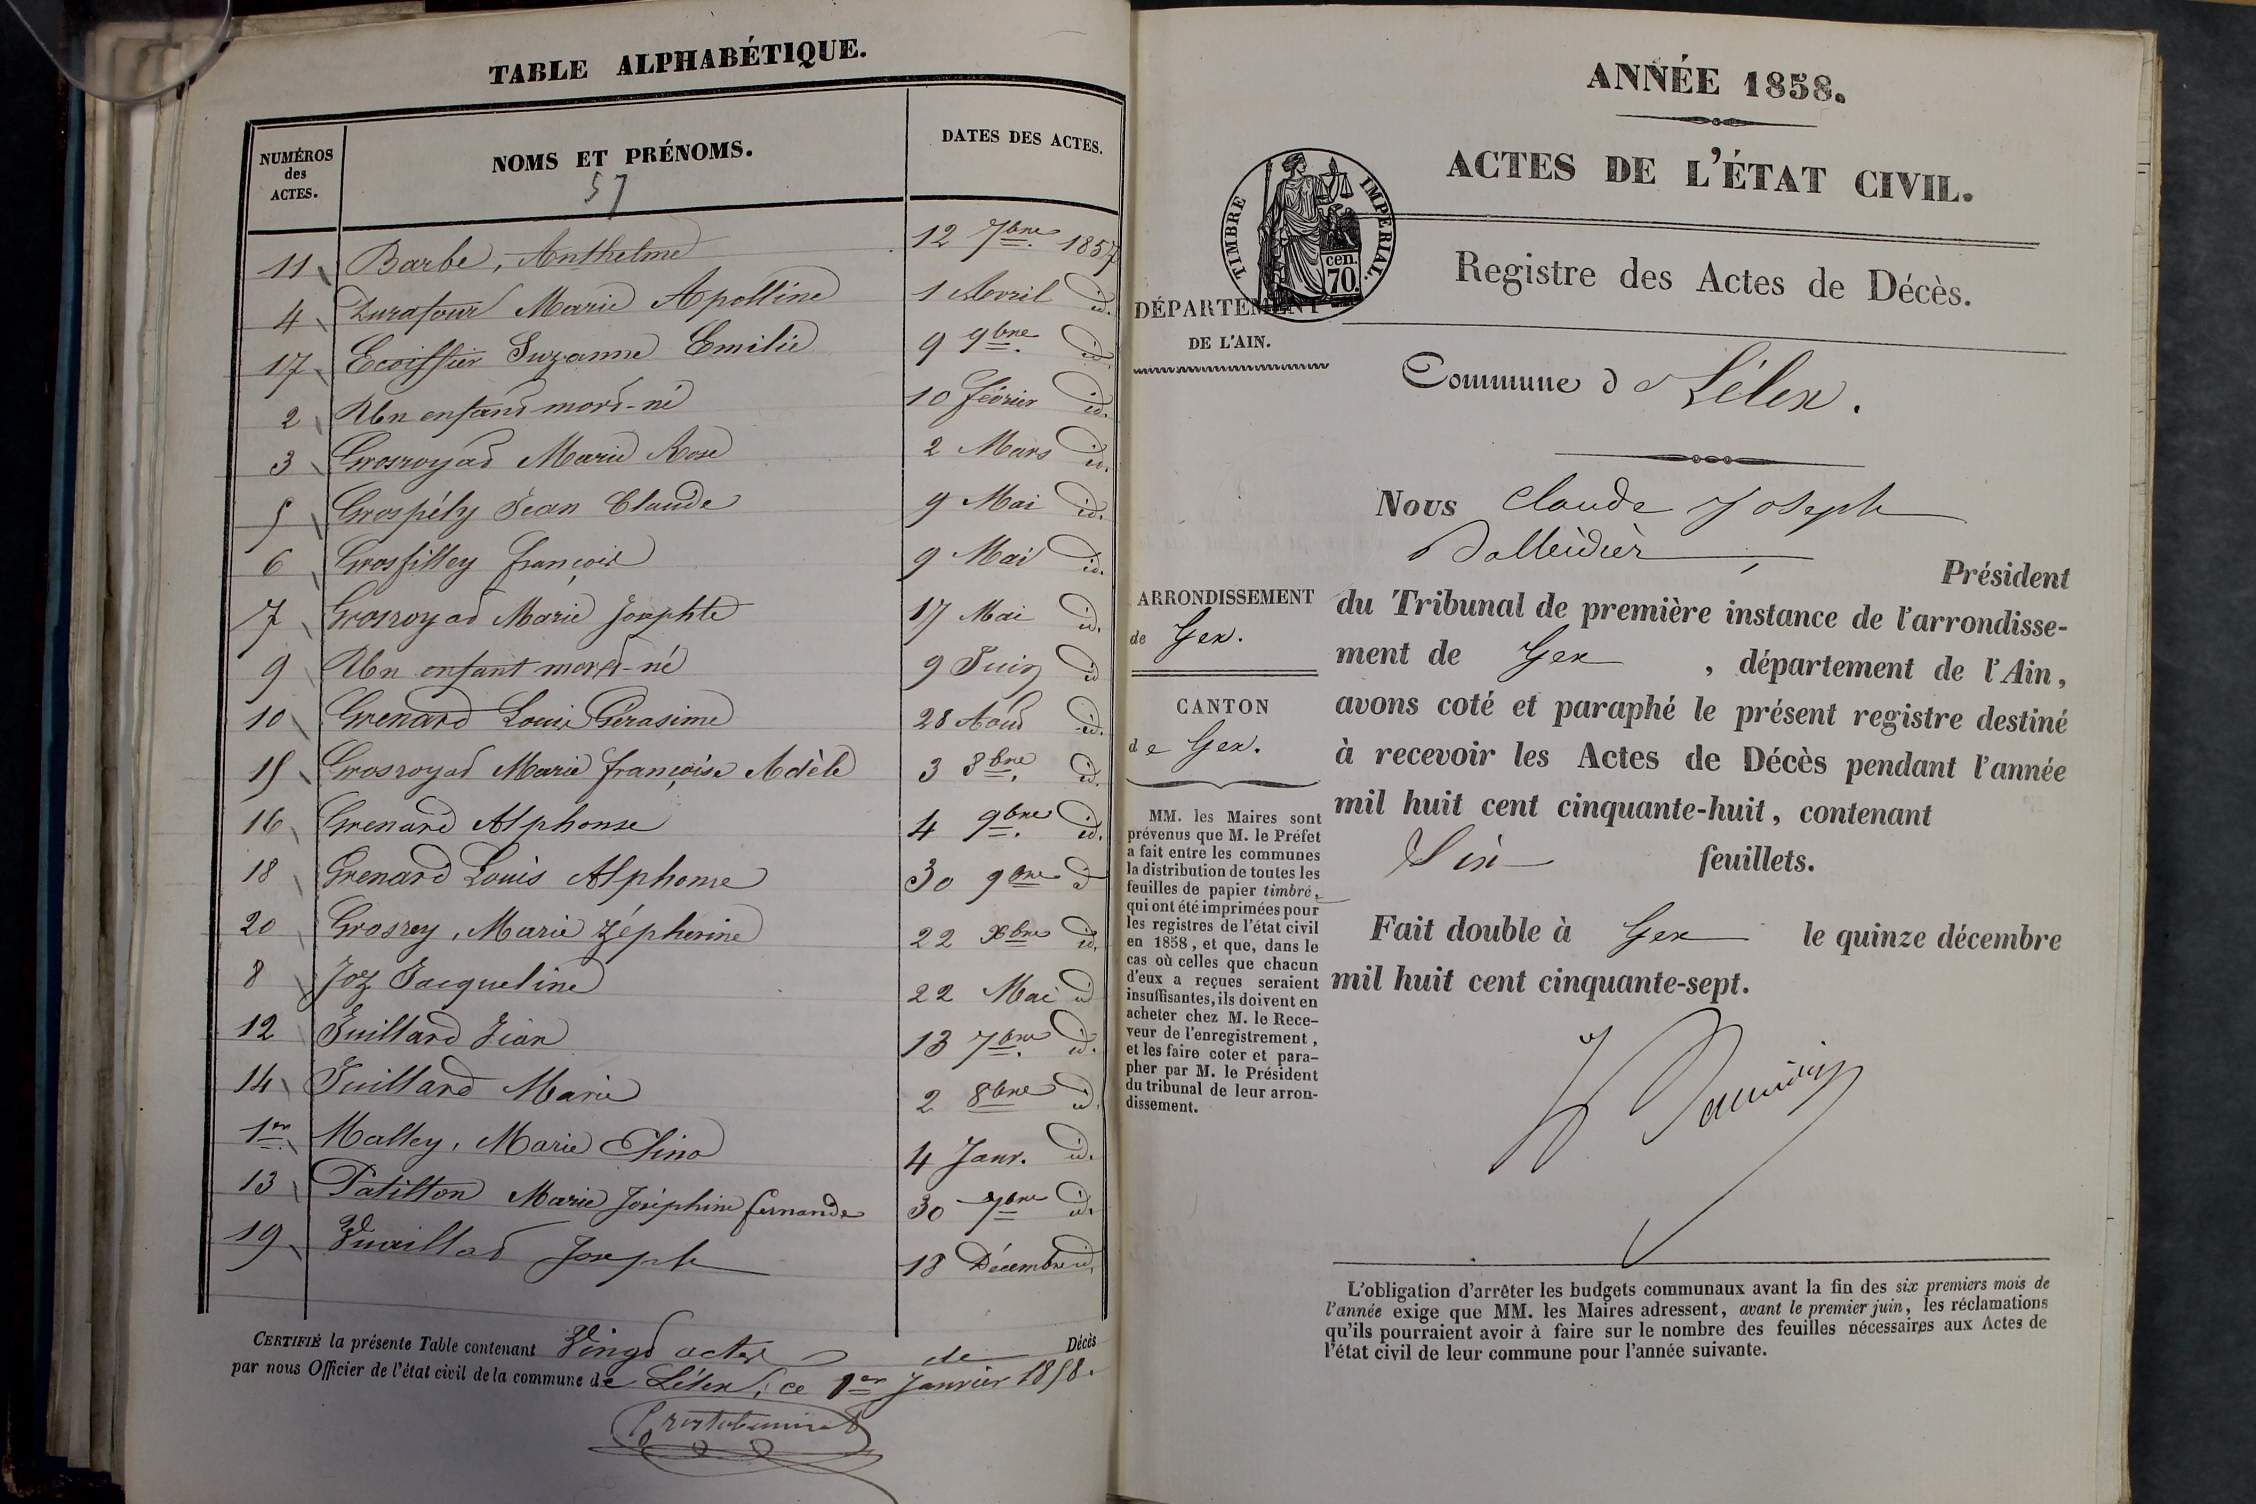 TABLE ALPHABÉTIQUE.
NUMÉROS des ACTES.
NOMS ET PRÉNOMS.
DATES DES ACTES.
57
11 Barbe, Anthelme 12 7bre 1857
4 Durafour Marie Apolline 1 Avril id.
17 Ecoiffier Suzanne Emilie 9 9bre id.
2 Un enfant mort-né 10 février id.
3 Grosroyat Marie Rose 2 Mars id.
5 Grospély Jean Claude 9 Mai id.
6 Grosfilley françois 9 Mai id.
7 Grosroyat Marie Josephte 17 Mai id.
9 Un enfant mort-né 9 Juin id
10 Grenard Louis Gérasime 28 Août id.
15 Grosroyat Marie françoise Adèle 3 8bre id.
16 Grenard Alphonse 4 9bre id.
18 Grenard Louis Alphonse 30 9bre id
20 Grosrey, Marie Zépherine 22 Xbre id.
8 Joz Jacqueline 22 Mai id
12 Juillard Jean 13 7bre id.
14 Juillard Marie 2 8bre id.
1er Malley, Marie Elina 4 Janv. id.
13 Patilton Marie Joséphine fernande 30 7bre id.
19 Vuaillat Joseph 18 Décembre id.
CERTIFIÉ la présente Table contenant Vingt actes de Décès
par nous Officier de l'état civil de la commune de Lélex, ce 1er Janvier 1858.
ANNÉE 1858.
ACTES DE L'ÉTAT CIVIL.
TIMBRE IMPÉRIAL.
cen.
70.
Registre des Actes de Décès.
DÉPARTEMENT
DE L'AIN.
Commune de Lélex.
ARRONDISSEMENT
de Gex.
CANTON
de Gex.
MM. les Maires sont
prévenus que M. le Préfet
a fait entre les communes
la distribution de toutes les
feuilles de papier timbré,
qui ont été imprimées pour
les registres de l'état civil
en 1858, et que, dans le
cas où celles que chacun
d'eux a reçues seraient
insuffisantes, ils doivent en
acheter chez M. le Rece-
veur de l'enregistrement,
et les faire coter et para-
pher par M. le Président
du tribunal de leur arron-
dissement.
Nous Claude Joseph
Président
du Tribunal de première instance de l'arrondisse-
ment de Gex, département de l'Ain,
avons coté et paraphé le présent registre destiné
à recevoir les Actes de Décès pendant l'année
mil huit cent cinquante-huit, contenant
Six feuillets.
Fait double à Gex le quinze décembre
mil huit cent cinquante-sept.
L'obligation d'arrêter les budgets communaux avant la fin des six premiers mois de
l'année exige que MM. les Maires adressent, avant le premier juin, les réclamations
qu'ils pourraient avoir à faire sur le nombre des feuilles nécessaires aux Actes de
l'état civil de leur commune pour l'année suivante.